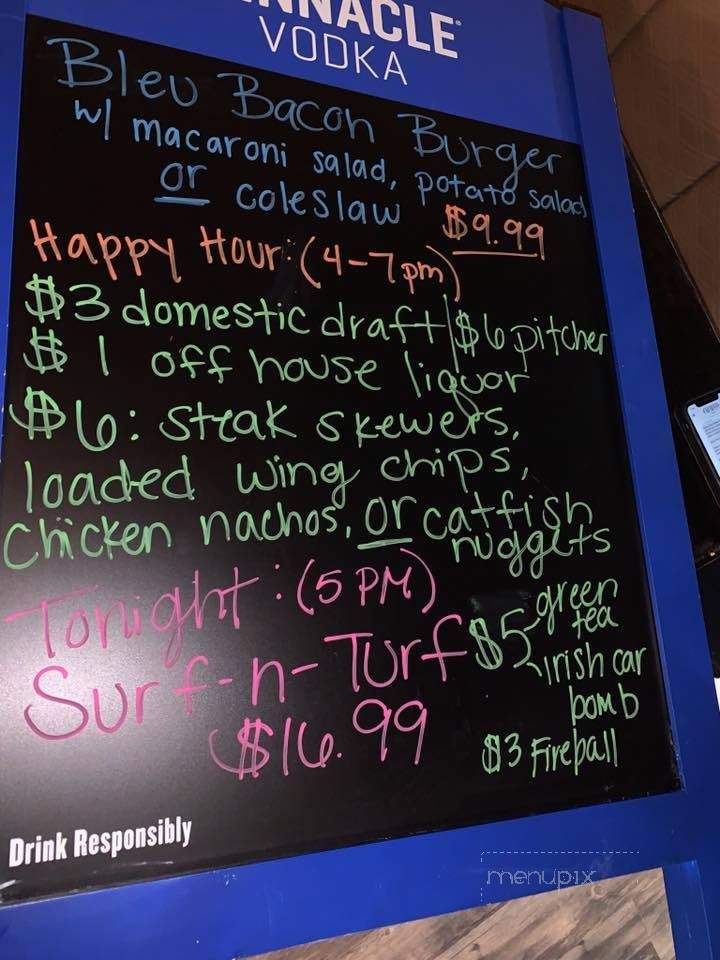 VODKA
Bleu Bacon Burger
w/ macaroni salad, potato salad
or coleslaw $9.99
Happy Hour: (4-7pm)
$3 domestic draft | $6 pitcher
$1 off house liquor
$6: steak skewers,
loaded wing chips,
Chicken nachos, or catfish
nuggets
Tonight: (5 PM)
Surf-n-Turf
$16.99
$5 -green
tea
-Irish car
bomb
$3 Fireball
Drink Responsibly
menupix